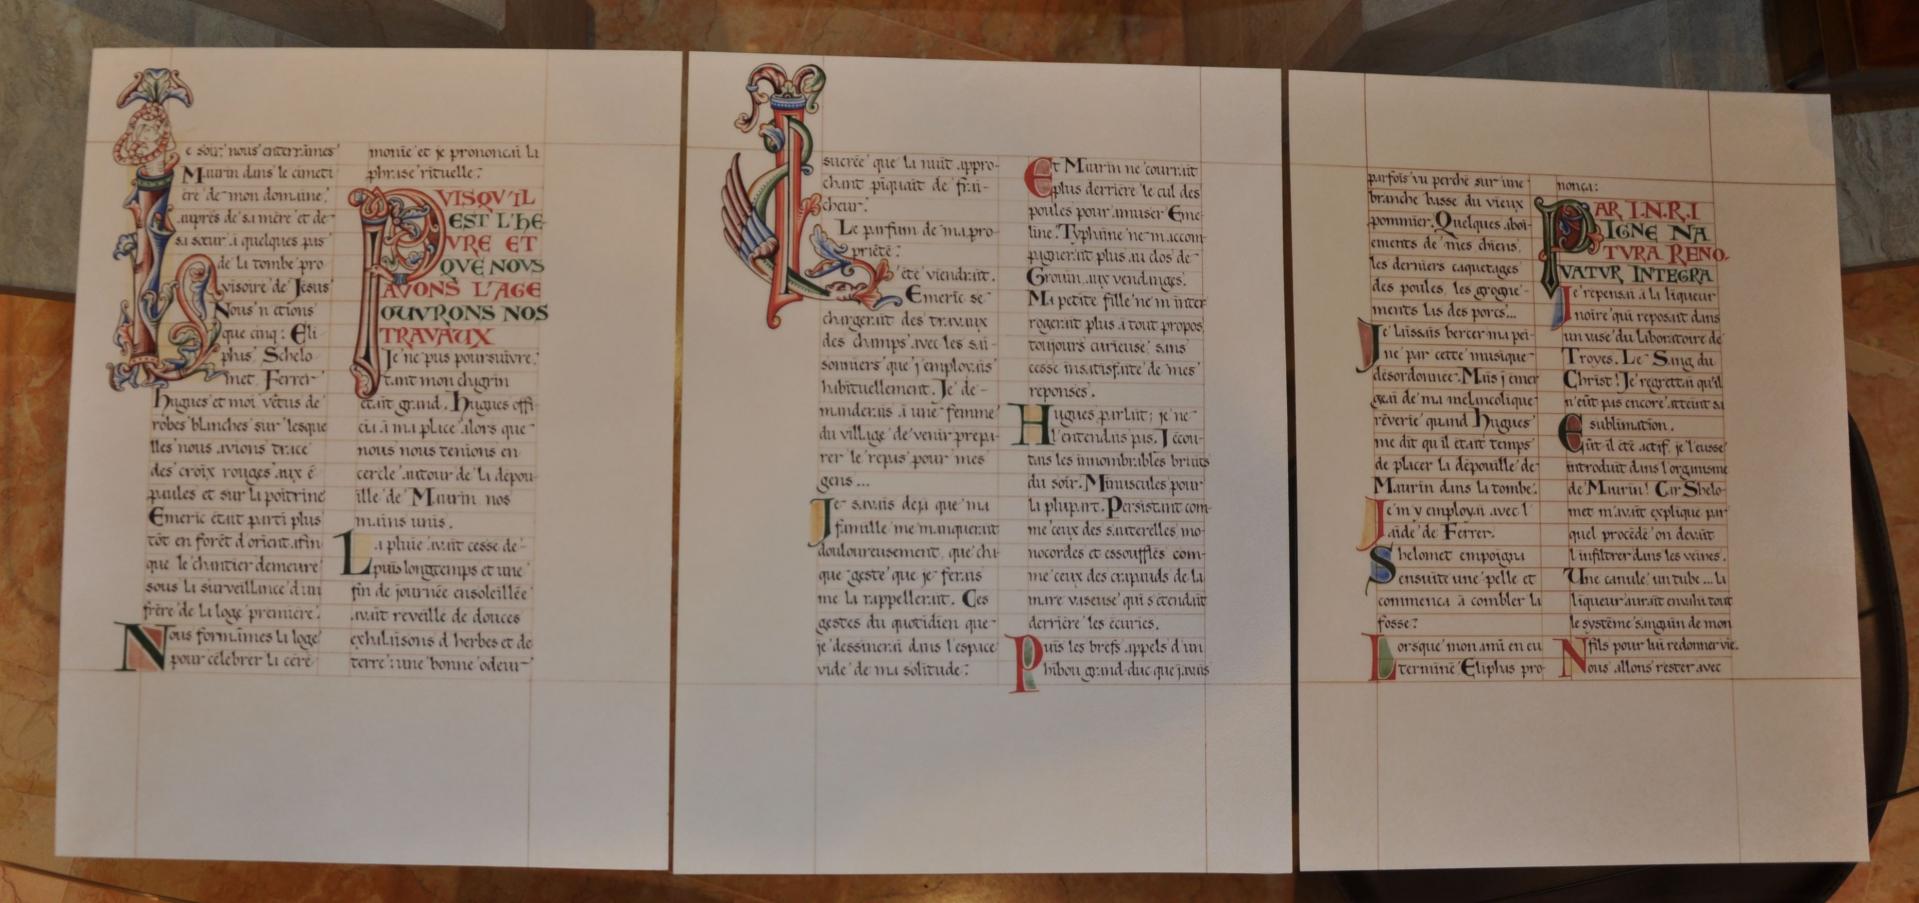 e soir nous enterrâmes
Maurin dans le cimeti
ère de mon domaine,
auprès de sa mère et de
sa sœur à quelques pas
de la tombe pro
visoire de Jésus
Nous n'étions
que cinq: Eli
phus, Schelo
met, Ferrer
hugues et moi vêtus de
robes blanches sur lesque
lles nous avions tracé
des croix rouges aux é
paules et sur la poitrine
Emeric était parti plus
tôt en forêt d'orient afin
que le chantier demeure
sous la surveillance d'un
frère de la loge première.
Nous formâmes la loge
pour célébrer la céré
monie et je prononçai la
phrase rituelle:
PUISQV'IL
EST L'HE
VRE ET
QVE NOVS
AVONS L'AGE
OUVRONS NOS
TRAVAUX
Je ne pus poursuivre,
tant mon chagrin
était grand. Hugues offi
cia à ma place alors que
nous nous tenions en
cercle autour de la dépou
ille de Maurin nos
mains unis.
La pluie avait cessé de
puis longtemps et une
fin de journée ensoleillée
avait réveillé de douces
exhalaisons d'herbes et de
terre: une bonne odeur
sucrée que la nuit appro-
chant piquait de fraî-
cheur.
Le parfum de ma pro
priété:
L'été viendrait.
Emeric se
chargerait des travaux
des champs avec les sai
sonniers que j'employais
habituellement. Je de-
manderais à une femme
du village de venir prépa
rer le repas pour mes
gens...
Je savais déjà que ma
famille me manquerait
douloureusement, que cha
que geste que je ferais
me la rappellerait. Ces
gestes du quotidien que
je dessinerai dans l'espace
vide de ma solitude:
Et Maurin ne courrait
plus derrière le cul des
poules pour amuser Eme
line. Typhaine ne m'accom
pagnerait plus au clos de
Grouin aux vendanges.
Ma petite fille ne m'inter
rogerait plus à tout propos,
toujours curieuse, sans
cesse insatisfaite de mes
réponses.
Hugues parlait; je ne
l'entendais pas. J'écou-
tais les innombrables bruits
du soir. Minuscules pour
la plupart. Persistant com-
me ceux des sauterelles, mo-
nocordes et essoufflés com-
me ceux des crapauds de la
mare vaseuse qui s'étendait
derrière les écuries.
Puis les brefs appels d'un
hibou grand-duc que j'avais
parfois vu perché sur une
branche basse du vieux
pommier. Quelques aboi-
ements de mes chiens,
les derniers caquetages
des poules, les grogne-
ments las des porcs...
Je laissais bercer ma pei-
ne par cette musique
désordonnée. Mais j'émer
geai de ma mélancolique
rêverie quand Hugues
me dit qu'il était temps
de placer la dépouille de
Maurin dans la tombe.
Je m'y employai avec l'
aide de Ferrer.
Shelomet empoigna
ensuite une pelle et
commença à combler la
fosse:
Lorsque mon ami en eu
terminé, Eliphus pro
nonça:
PAR I.N.R.I
IGNE NA
TVRA RENO-
VATVR INTEGRA
Je repensai à la liqueur
noire qui reposait dans
un vase du laboratoire de
Troyes. Le Sang du
Christ! Je regrettai qu'il
n'eût pas encore atteint sa
sublimation.
Eût-il été actif, je l'eusse
introduit dans l'organisme
de Maurin! Car Shelo-
met m'avait expliqué par
quel procédé on devait
l'infiltrer dans les veines.
Une canule, un tube... la
liqueur aurait envahi tout
le système sanguin de mon
fils pour lui redonner vie.
Nous allons rester avec